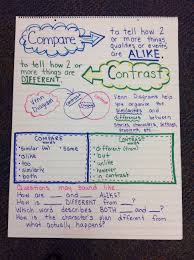 Compare
to tell how 2
or more things
qualities or events
are ALIKE.
to tell how 2
or more things are
DIFFERENT.
Contrast
Venn Diagram
Venn Diagrams help
you organize the
similarities and
differences between
stories, characters, settings,
COMPARE
words
* similar (to) * same
* alike
* too
* similarly
* both
CONTRAST
words
* different (from)
* but
* unlike
* however
* in contrast
Questions may sound like...
How are ___ and ___ ALIKE?
How is ___ DIFFERENT from ___?
Which word describes BOTH ___ and ___?
How is the character's plan different from
what actually happens?